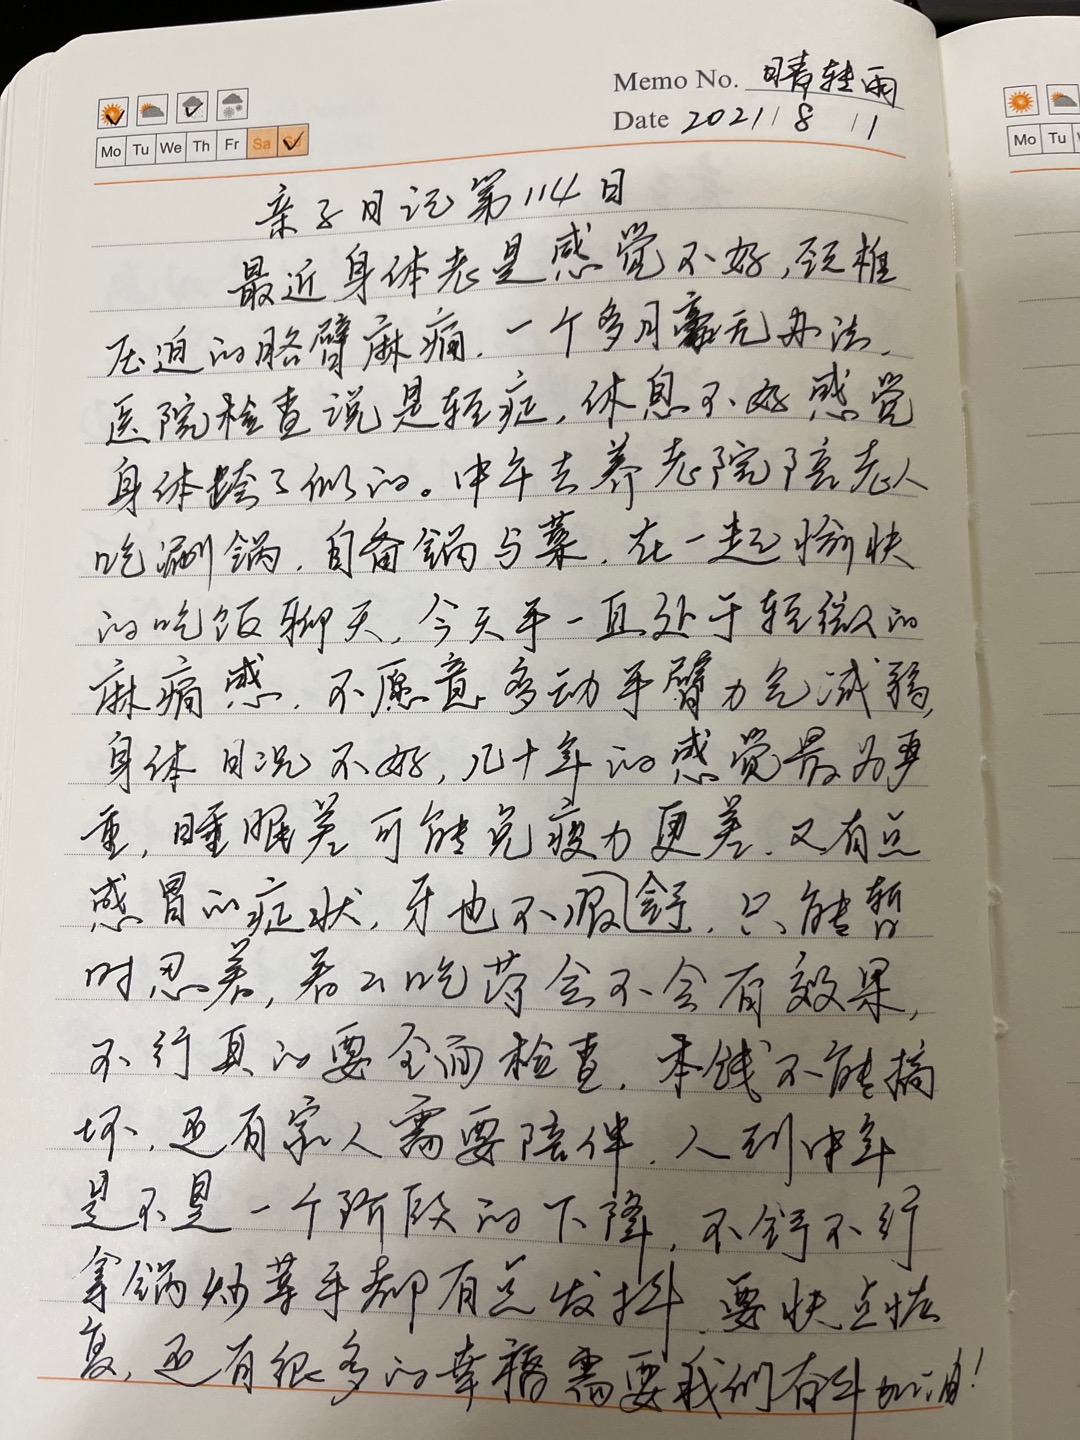 Memo No. 晴转雨
Mo Tu We Th Fr Sa Su
Date 2021 / 8 / 1
Mo Tu
亲子日记第114日
最近身体老是感觉不好,颈椎
压迫的胳臂麻痛.一个多月毫无办法.
医院检查说是轻症,休息不好感觉
身体垮了似的。中午去养老院陪老人
吃涮锅.自备锅与菜.在一起愉快
的吃饭聊天,今天手一直处于轻微的
麻痛感.不愿意多动手臂力气减弱,
身体日况不好,几十年的感觉最为严
重,睡眠差可能免疫力更差.又有点
感冒的症状,牙也不舒服.只能暂
时忍着,看么吃药会不会有效果,
不行真的要全面检查.本钱不能搞
坏.还有家人需要陪伴.人到中年
是不是一个阶段的下降,不舒不行
拿锅炒菜手都有点发抖.要快点恢
复,还有很多的幸福需要我们奋斗加油!